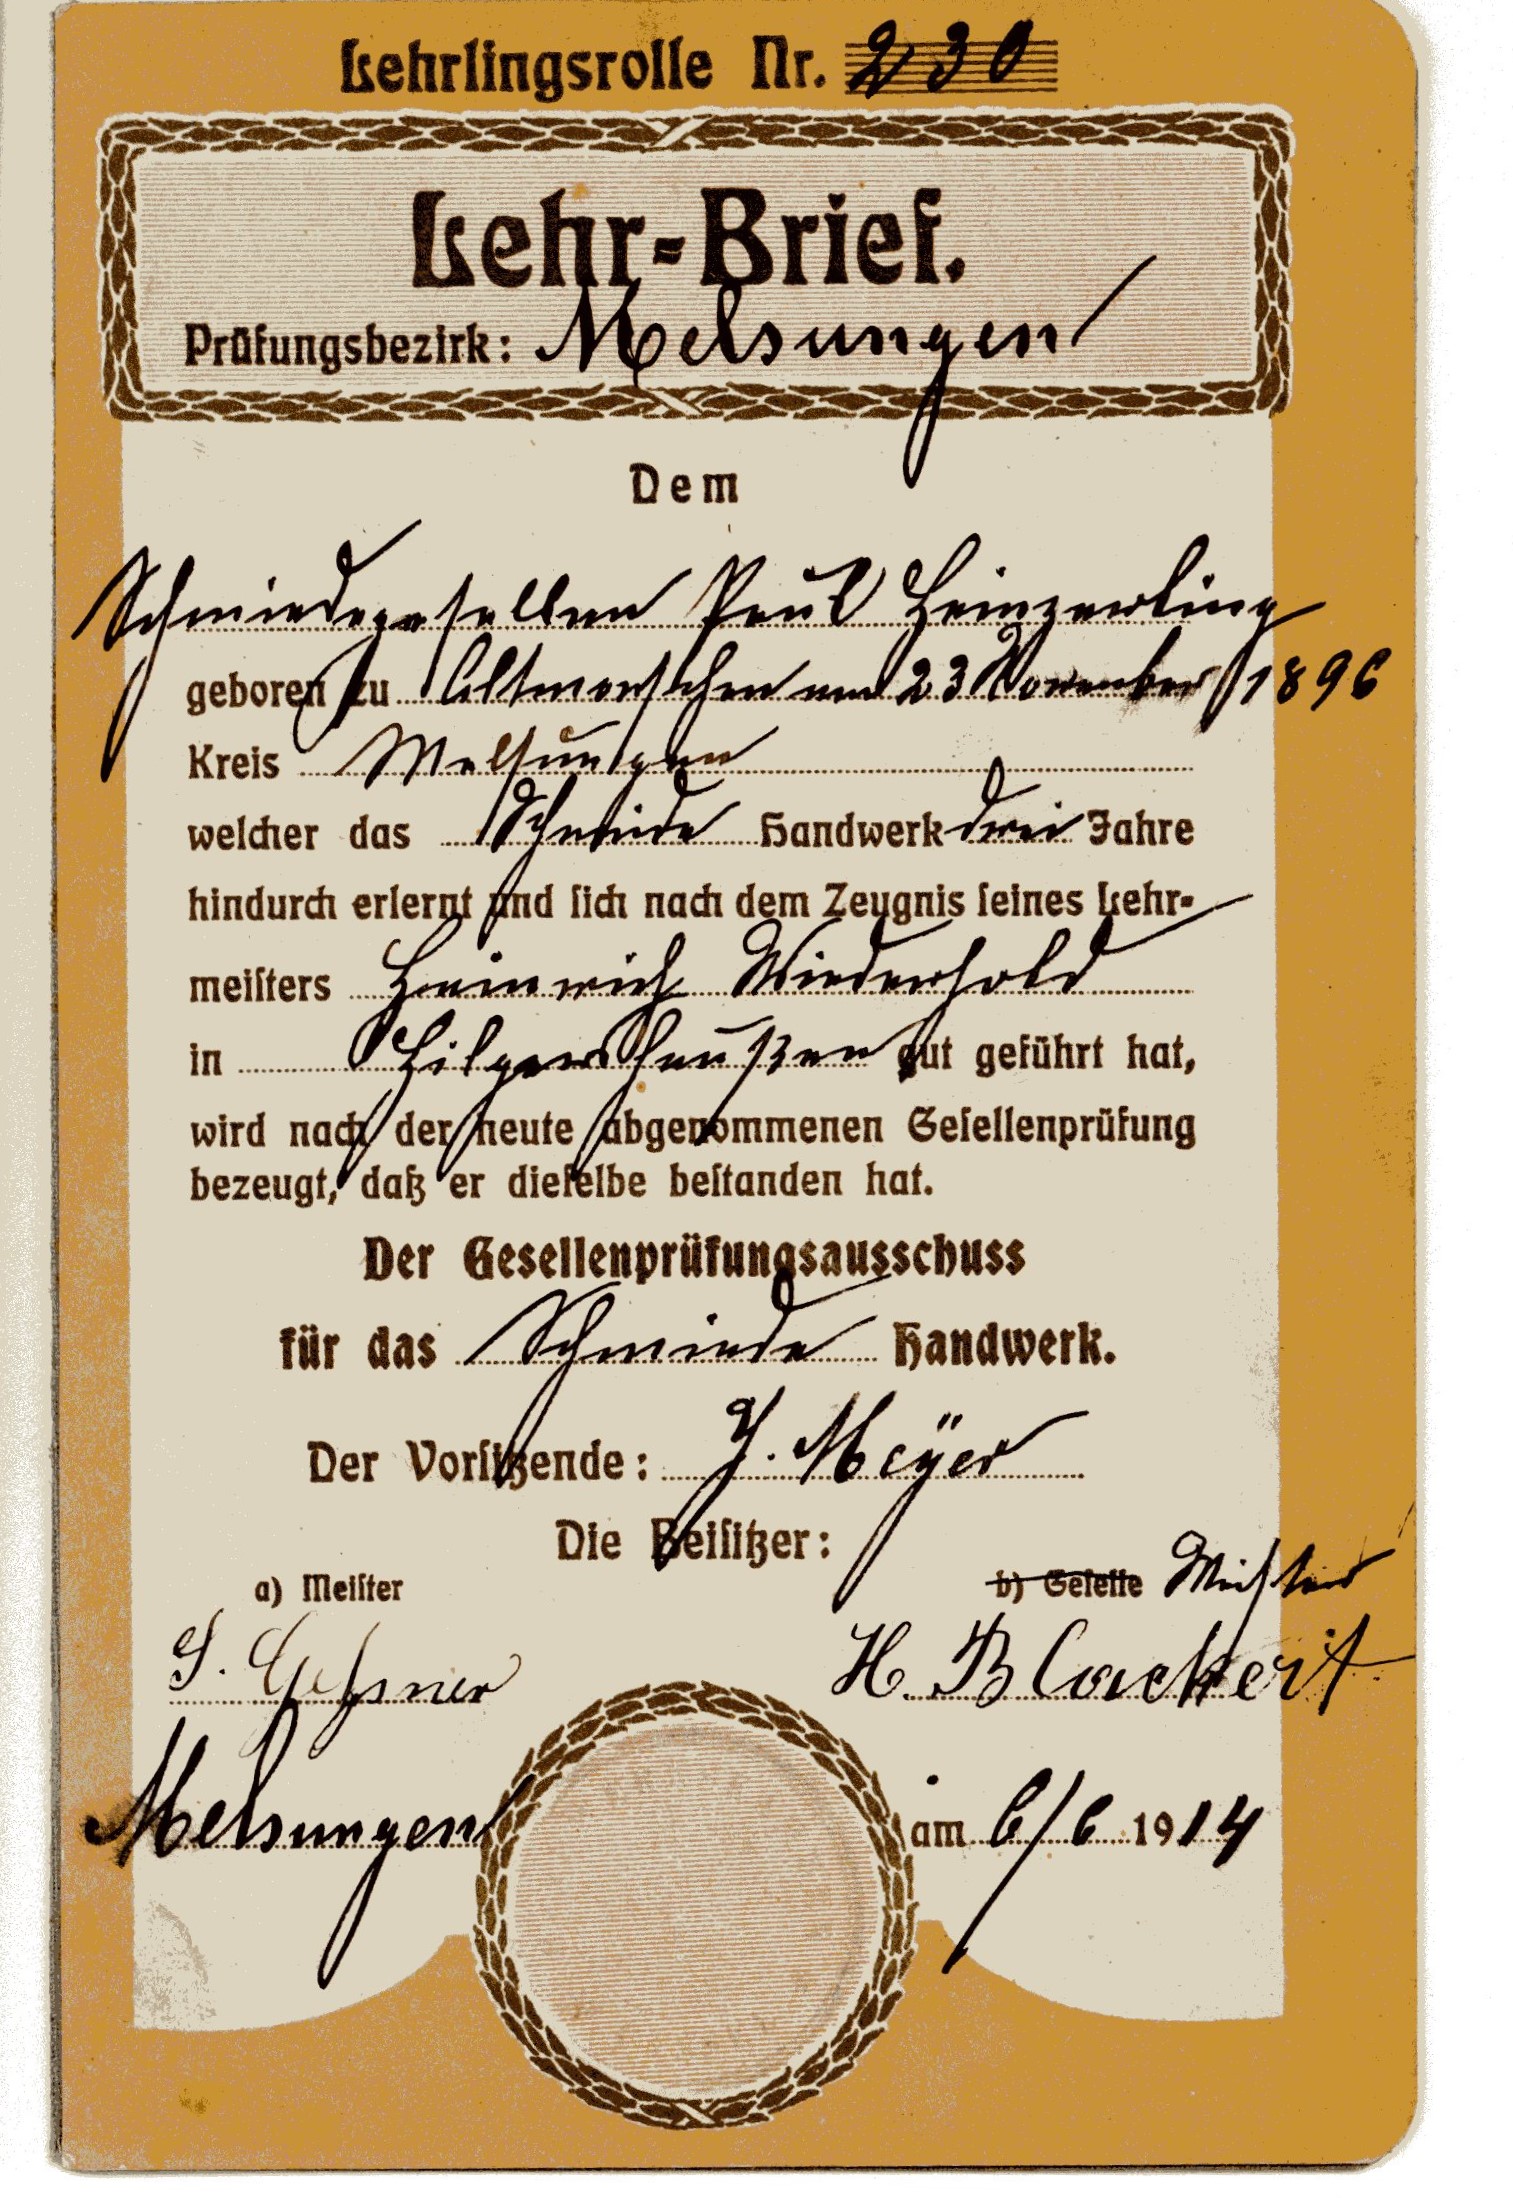 Lehrlingsrolle Nr. 230
Lehr-Brief.
Prüfungsbezirk: Melsungen
Dem
Schmiedegesellen Paul Heinzerling
geboren zu Altmorschen am 23 November 1896
Kreis Melsungen
welcher das Schmiede Handwerk drei Jahre
hindurch erlernt und ſich nach dem Zeugnis ſeines Lehr-
meiſters Heinrich Wiederhold
in Hilgershaußen gut geführt hat,
wird nach der heute abgenommenen Geſellenprüfung
bezeugt, daß er dieſelbe beſtanden hat.
Der Gesellenprüfungsausschuss
für das Schmiede Handwerk.
Der Vorſitzende: J. Meÿer
Die Beiſitzer:
a) Meiſter b) Geſelle Meister
H. Blackert
Melsungen am 6/6 1914